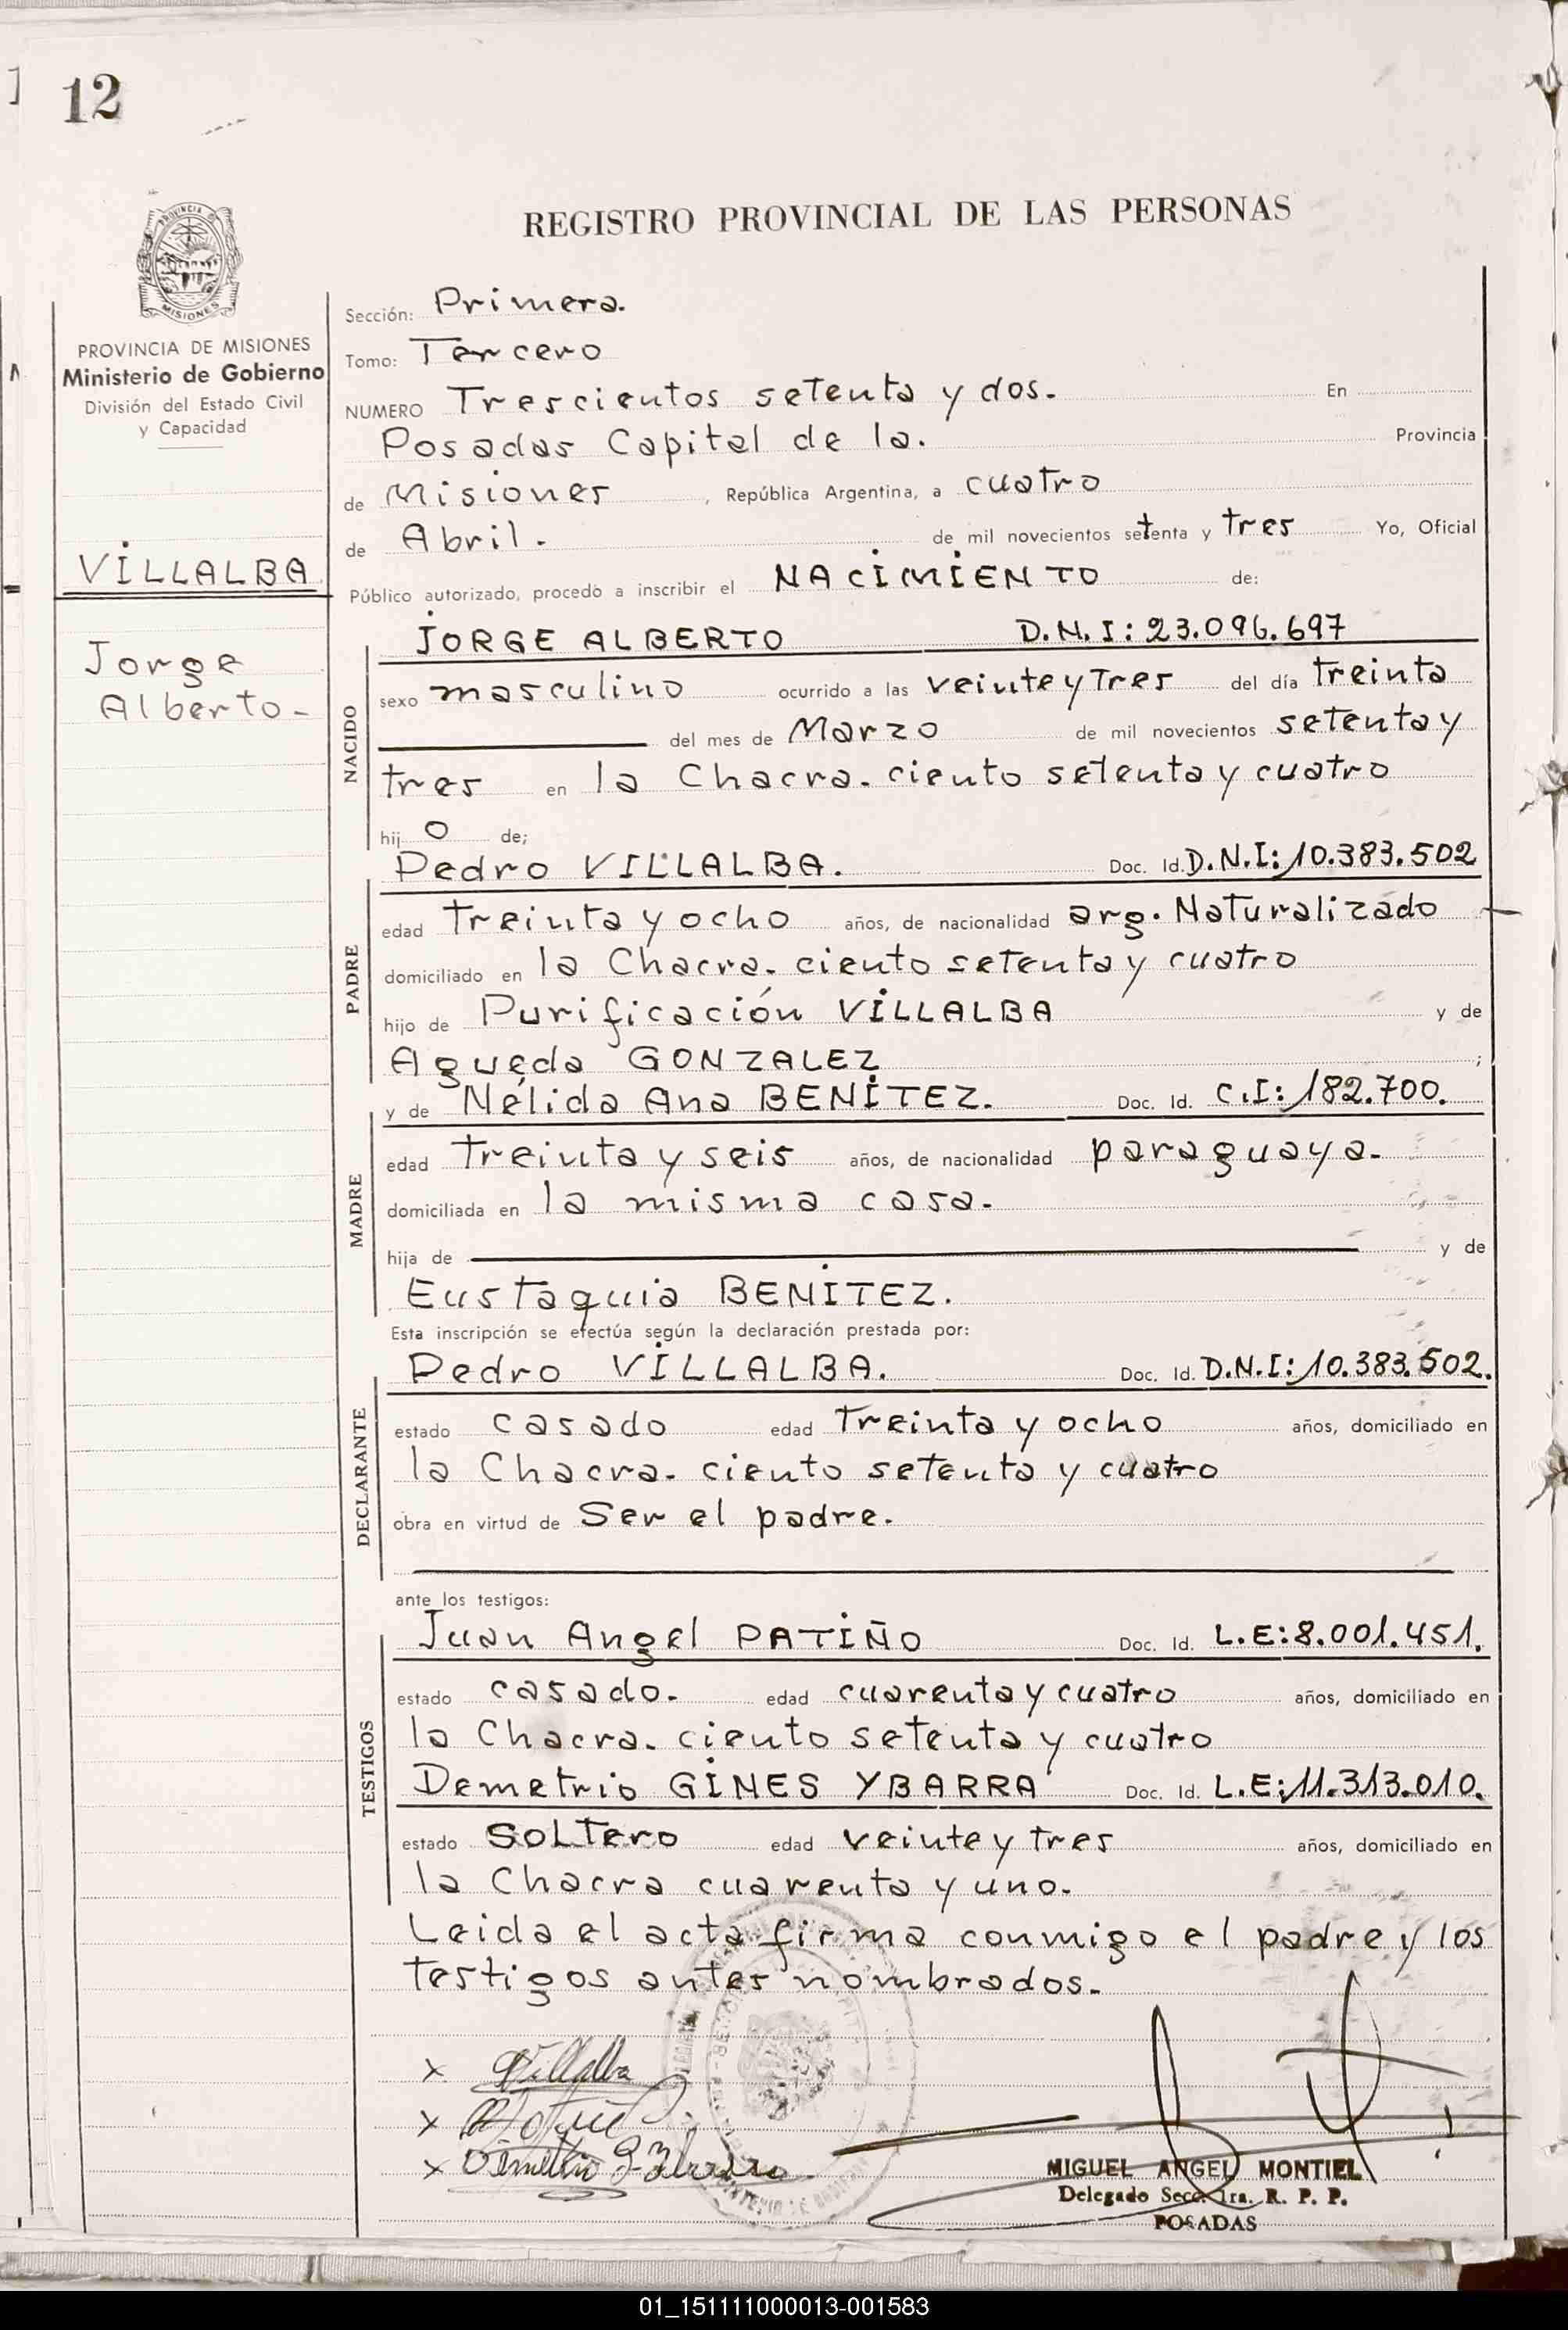 12
REGISTRO PROVINCIAL DE LAS PERSONAS
PROVINCIA DE
MISIONES
PROVINCIA DE MISIONES
Ministerio de Gobierno
División del Estado Civil
y Capacidad
VILLALBA
Jorge
Alberto-
Sección: Primera.
Tomo: Tercero
NUMERO Trescientos setenta y dos. En
Posadas Capital de la. Provincia
de Misiones , República Argentina, a cuatro
de Abril. de mil novecientos setenta y tres Yo, Oficial
Público autorizado, procedo a inscribir el NACIMIENTO de:
JORGE ALBERTO D.N.I: 23.096.697
NACIDO
sexo masculino ocurrido a las veinte y tres del día treinta
del mes de Marzo de mil novecientos setenta y
tres en la Chacra. ciento setenta y cuatro
hij o de;
Pedro VILLALBA. Doc. Id. D.N.I: 10.383.502
PADRE
edad treinta y ocho años, de nacionalidad arg. Naturalizado
domiciliado en la Chacra. ciento setenta y cuatro
hijo de Purificación VILLALBA y de
Agueda GONZALEZ ;
y de Nélida Ana BENÍTEZ. Doc. Id. C.I: 182.700.
MADRE
edad treinta y seis años, de nacionalidad paraguaya.
domiciliada en la misma casa.
hija de y de
Eustaquia BENITEZ.
Esta inscripción se efectúa según la declaración prestada por:
Pedro VILLALBA. Doc. Id. D.N.I: 10.383.502.
DECLARANTE
estado casado edad treinta y ocho años, domiciliado en
la Chacra. ciento setenta y cuatro
obra en virtud de Ser el padre.
ante los testigos:
Juan Angel PATIÑO Doc. Id. L.E: 8.001.451.
TESTIGOS
estado casado. edad cuarenta y cuatro años, domiciliado en
la Chacra. ciento setenta y cuatro
Demetrio GINES YBARRA Doc. Id. L.E: 11.313.010.
estado SOLTero edad veinte y tres años, domiciliado en
la Chacra cuarenta y uno.
Leida el acta firma conmigo el padre y los
testigos antes nombrados.
x Villalba
x
x
MIGUEL ANGEL MONTIEL
Delegado Secc. 1ra. R. P. P.
POSADAS
01_151111000013-001583